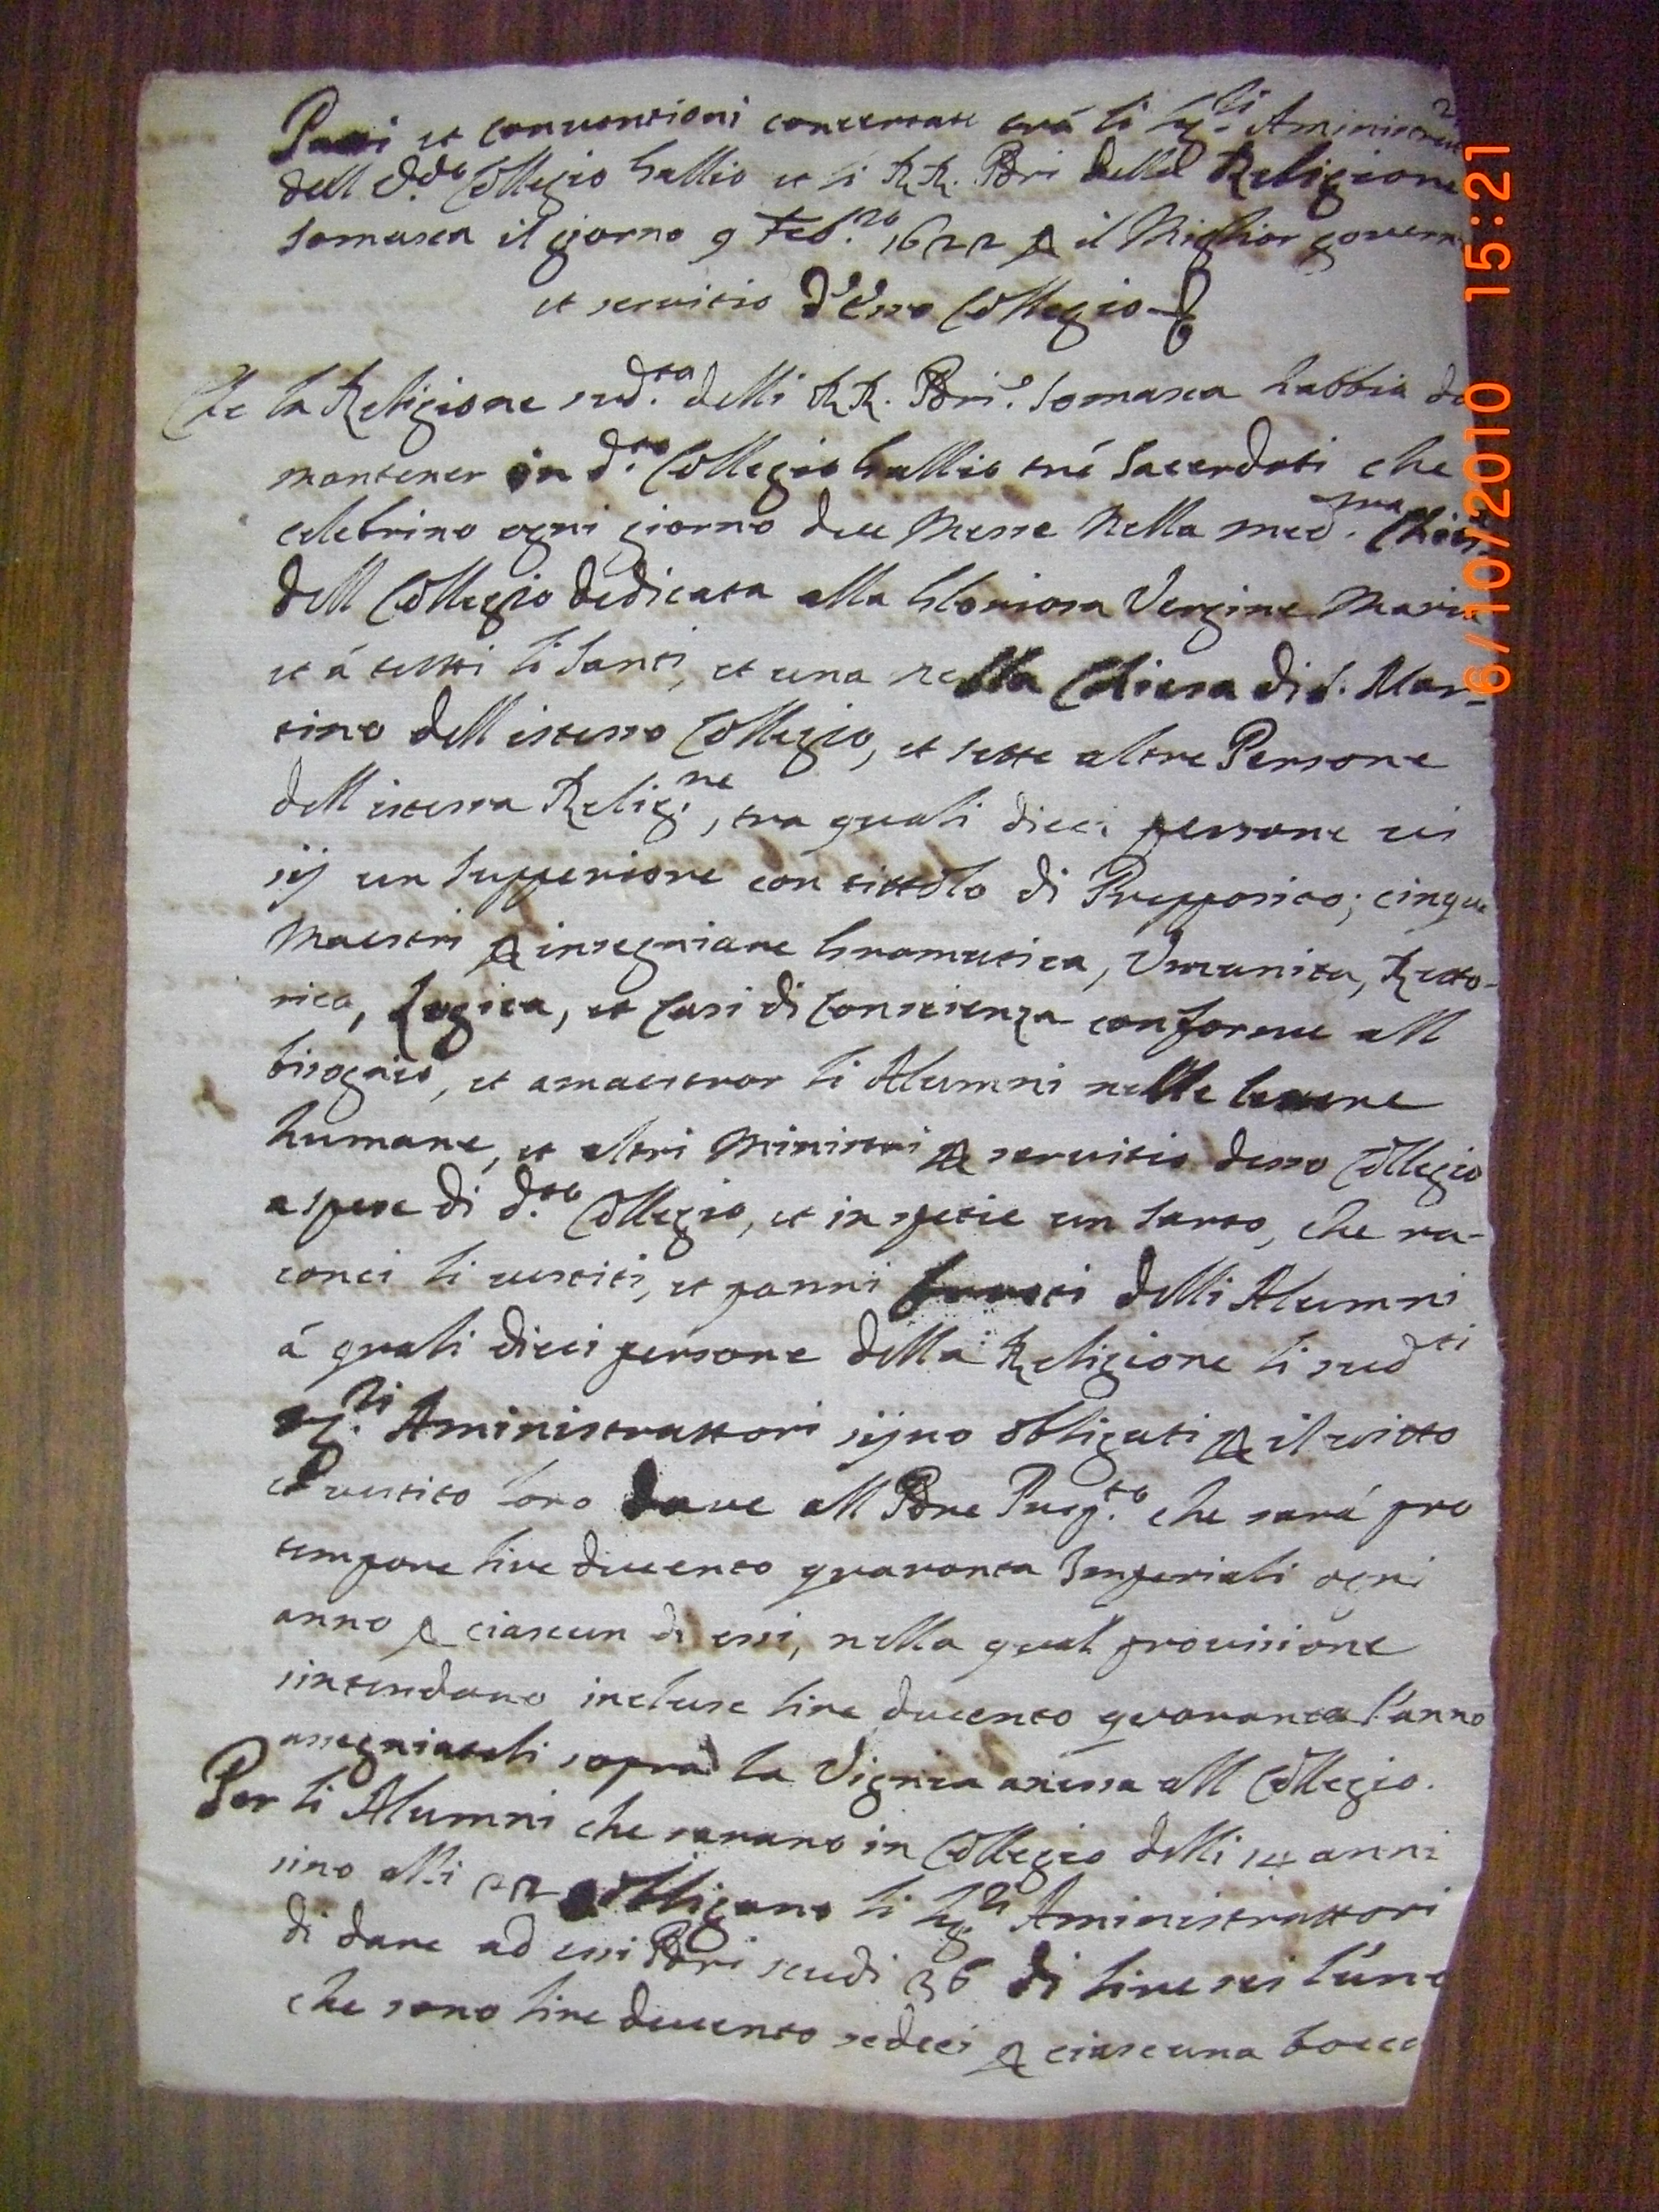 Patti et conventioni concertate trà li Sig.ri Aministra
dell d.to Collegio Gallio et li RR. Pdri della Religione
Somasca il giorno 9 Feb.ro 1622 p il Miglior govern
et servitio d'Esso Collegio
Che la Religione sud.ta delli RR. Pdri. Somasca habbia da
mantener in d.to Collegio Gallio trè Sacerdoti che
celebrino ogni giorno due Messe Nella med.ma Chies
dell Collegio dedicata alla Gloriosa Vergine Maria
et á tutti li Santi, et una nella Chiesa di S. Mar-
tino dell istesso Collegio, et sette altre Persone
dell istessa Relig.ne, tra quali dieci persone vi
sij un Supperiore con tittolo di Prepposito; cinque
Maestri p insegniare Gramatica, Umanita, Retto-
rica, Logica, et Casi di Conscienza conforme all
bisognio, et amaestrar li Alumni nelle lettere
humane, et altri Ministri p servitio desso Collegio
a spese di d.to Collegio, et in spetie un Sarto, che ra-
conci li vestiti, et panni delli Alumni
á quali dieci persone della Religione li sudti
Sig.ri Aministrattori sijno obligati p il vitto
et vestito loro dare all Pdre Prep.to che sará pro
tempore lire ducento quaranta Imperiali ogni
anno p ciascun di essi, nella qual provisione
sintendano incluse lire ducento quaranta l'anno
assegniateli sopra la Vignia anessa all Collegio.
Per li Alumni che sarano in Collegio delli 14 anni
sino alli 22 obligano li Sig.ri Aministrattori
di dare ad essi Pdri scudi 36 di lire sei l'uno
che sono lire ducento sedeci p ciascuna bocca
6/10/2010 15:21